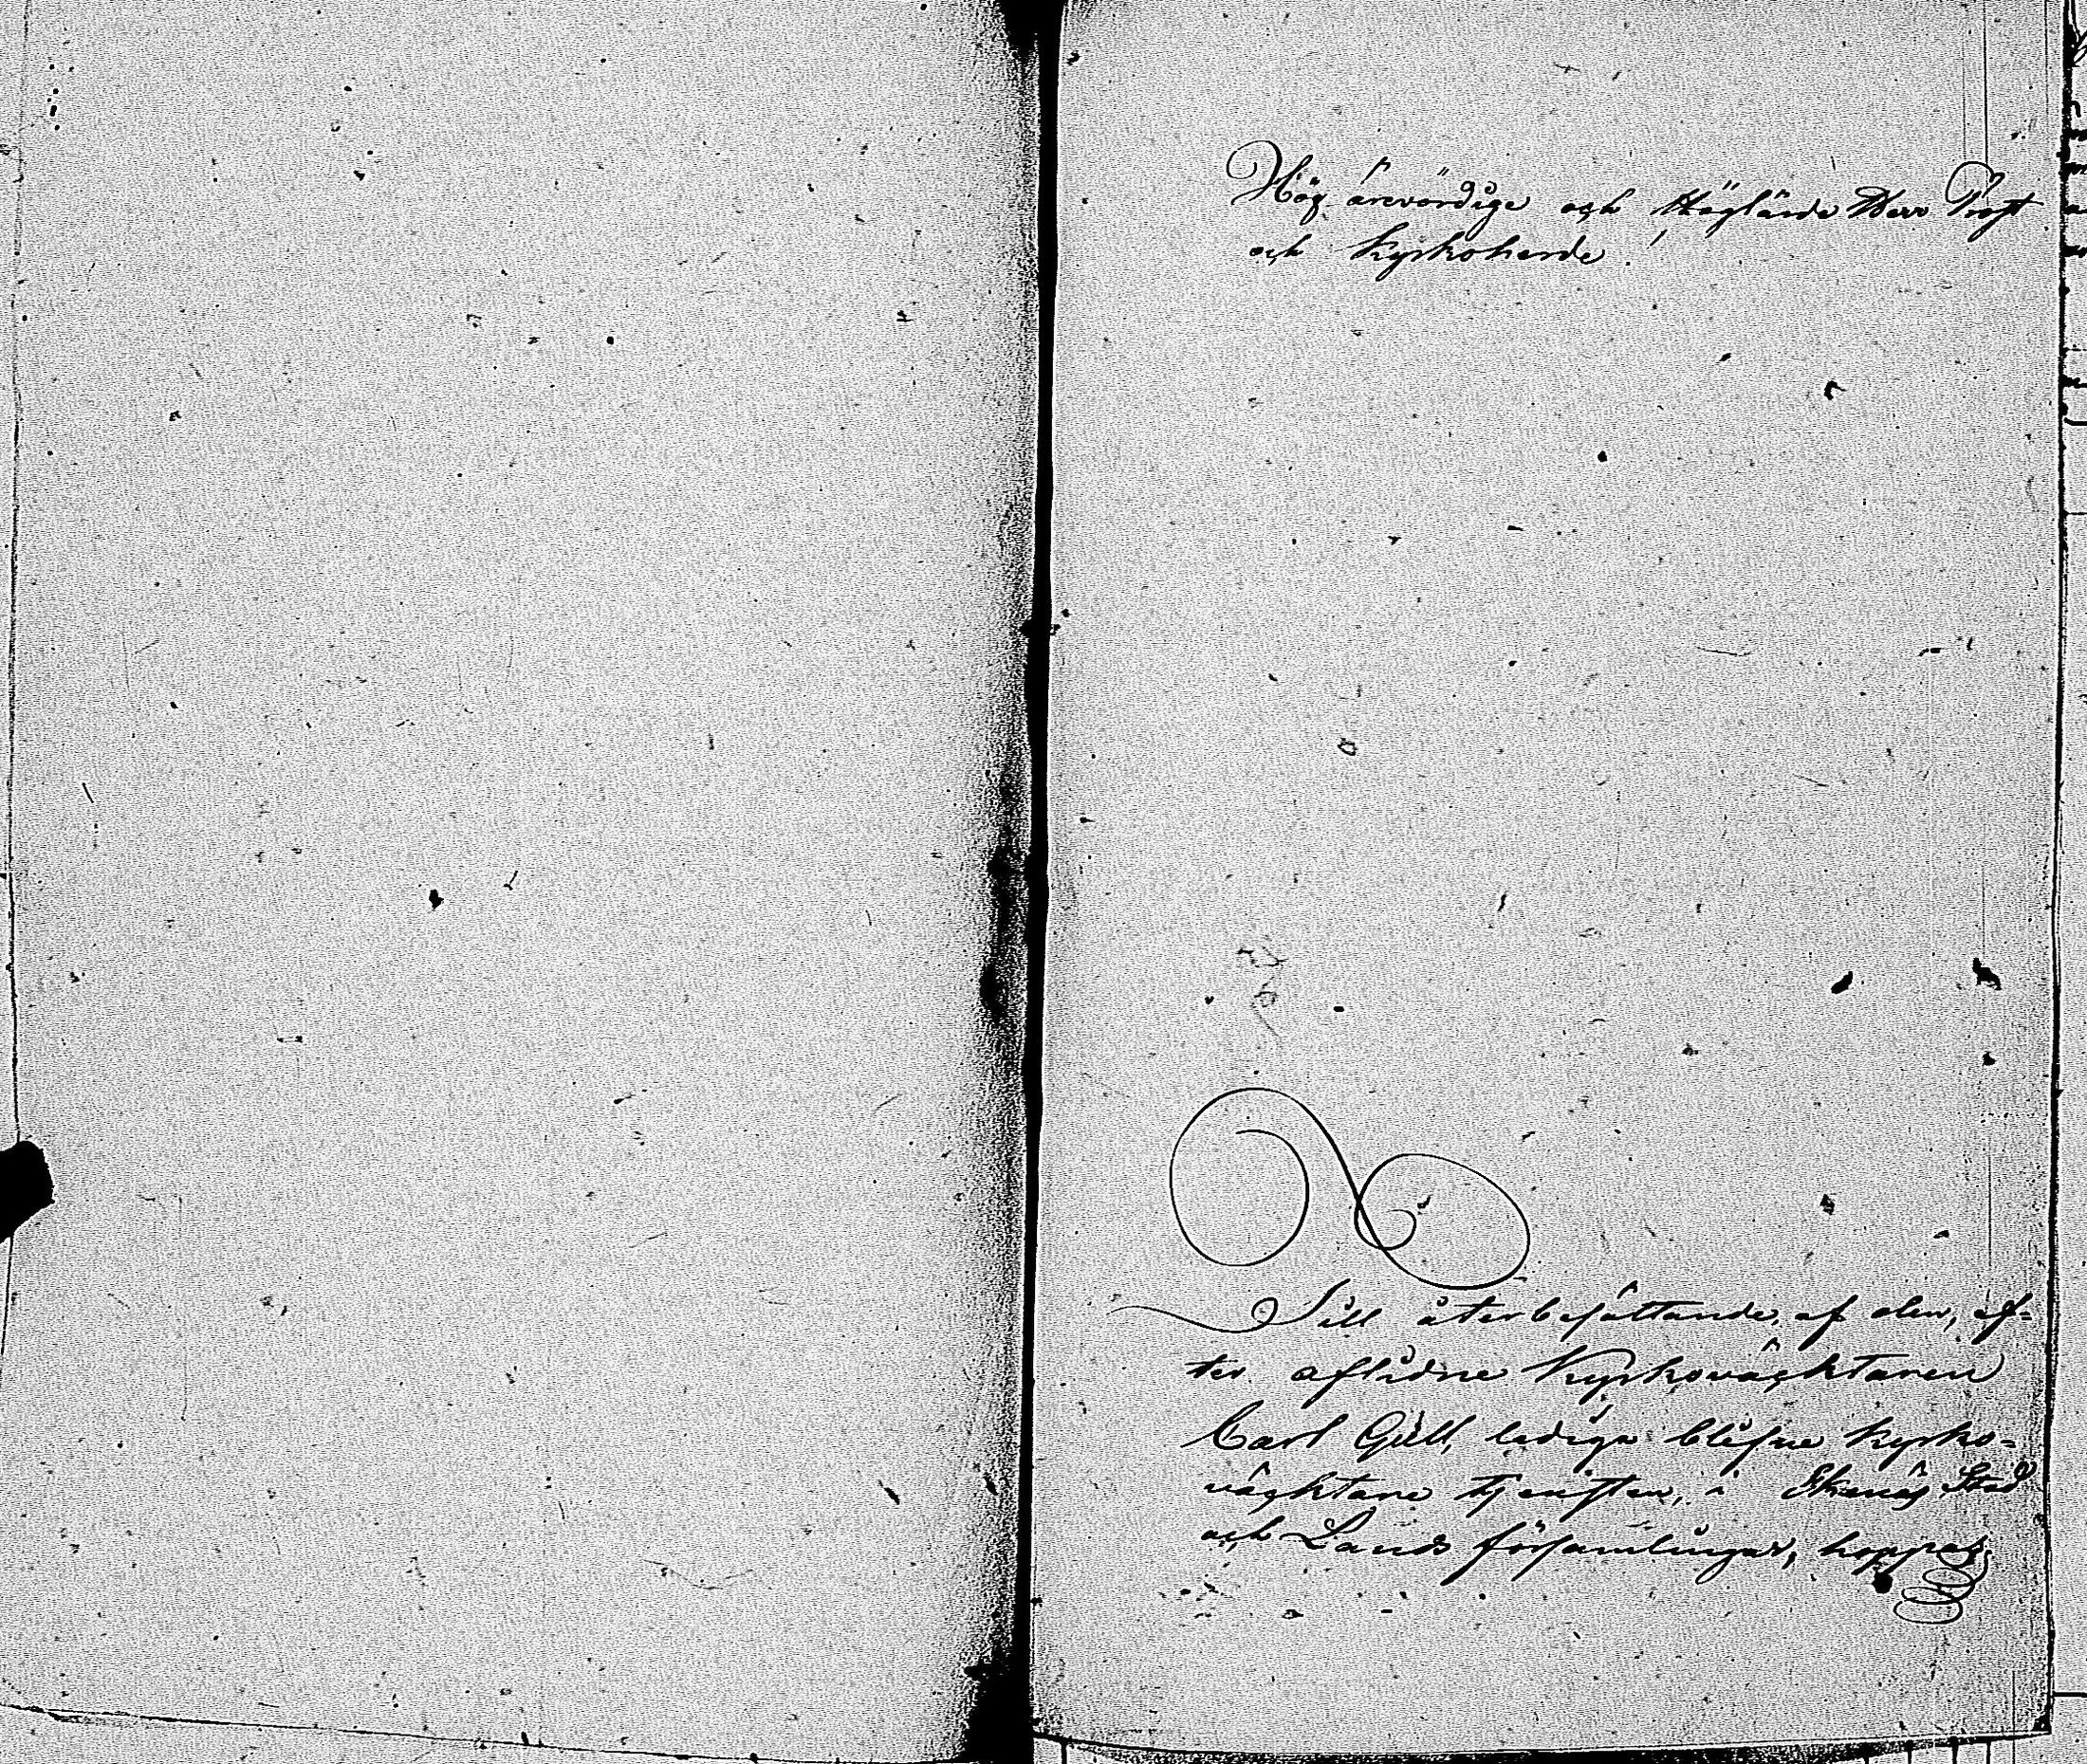 Högärevördige och Höglärde Herr Prost
och Kyrkoherde!
Till återbesättande, af den, ef=
ter aflidne Kyrkovächtaren
Carl Gull, lediga blifne kyrko=
vächtare tjensten, i Ekenäs Stad
och Lands församlingar, hoppas